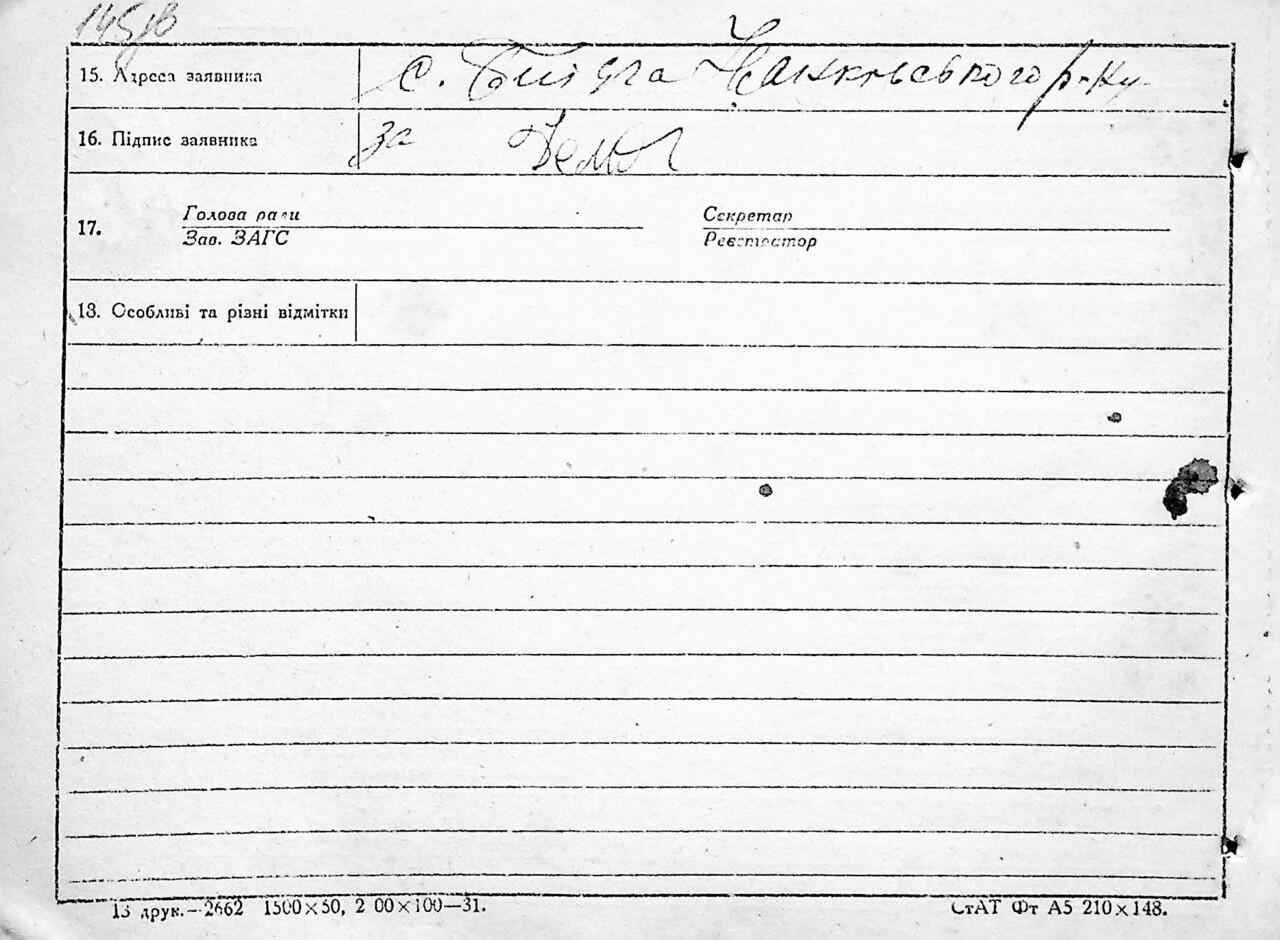 145зв
15. Адреса заявника с. Харківського р-ну
16. Підпис заявника за
17. Голова ради Секретар
Зав. ЗАГС Реєстратор
18. Особливі та різні відмітки
13 друк.—2662 1500×50, 2 00×100—31. СтАТ Фт А5 210×148.